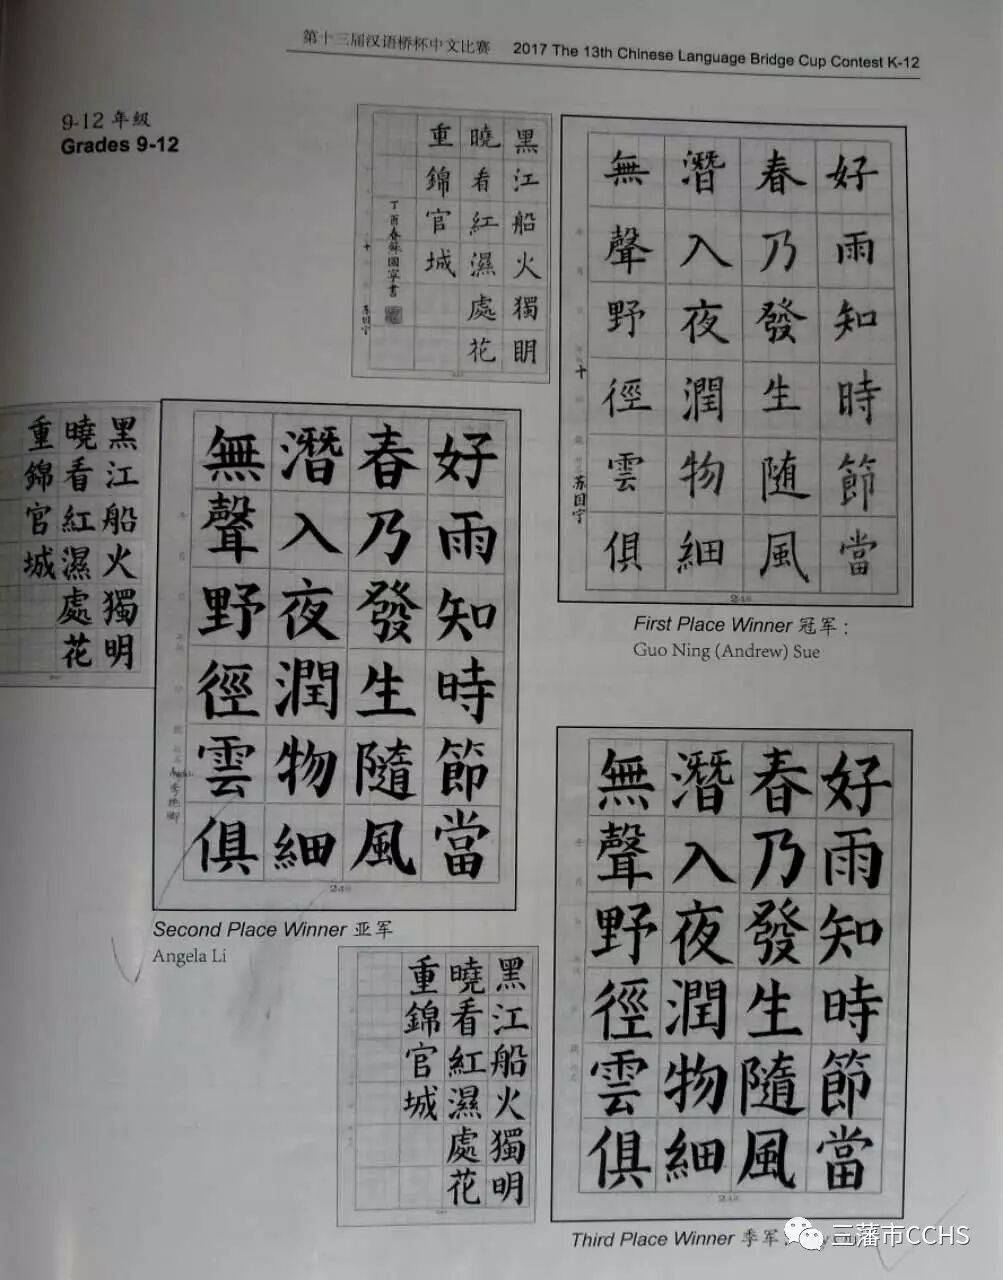 第十三届汉语桥杯中文比赛 2017 The 13th Chinese Language Bridge Cup Contest K-12
9-12 年级
Grades 9-12
好雨知時節當
春乃發生随風
潛入夜潤物細
無聲野徑雲俱
十
苏国宁
黑江船火獨眀
曉看紅濕處花
重錦官城
丁酉春蘇國寧書
十
苏国宁
First Place Winner 冠军：
Guo Ning (Andrew) Sue
好雨知時節當
春乃發生隨風
潛入夜潤物細
無聲野徑雲俱
黑江船火獨明
曉看紅濕處花
重錦官城
Second Place Winner 亚军
Angela Li
好雨知時節當
春乃發生隨風
潛入夜潤物細
無聲野徑雲俱
黑江船火獨明
曉看紅濕處花
重錦官城
Third Place Winner 季军
三藩市CCHS